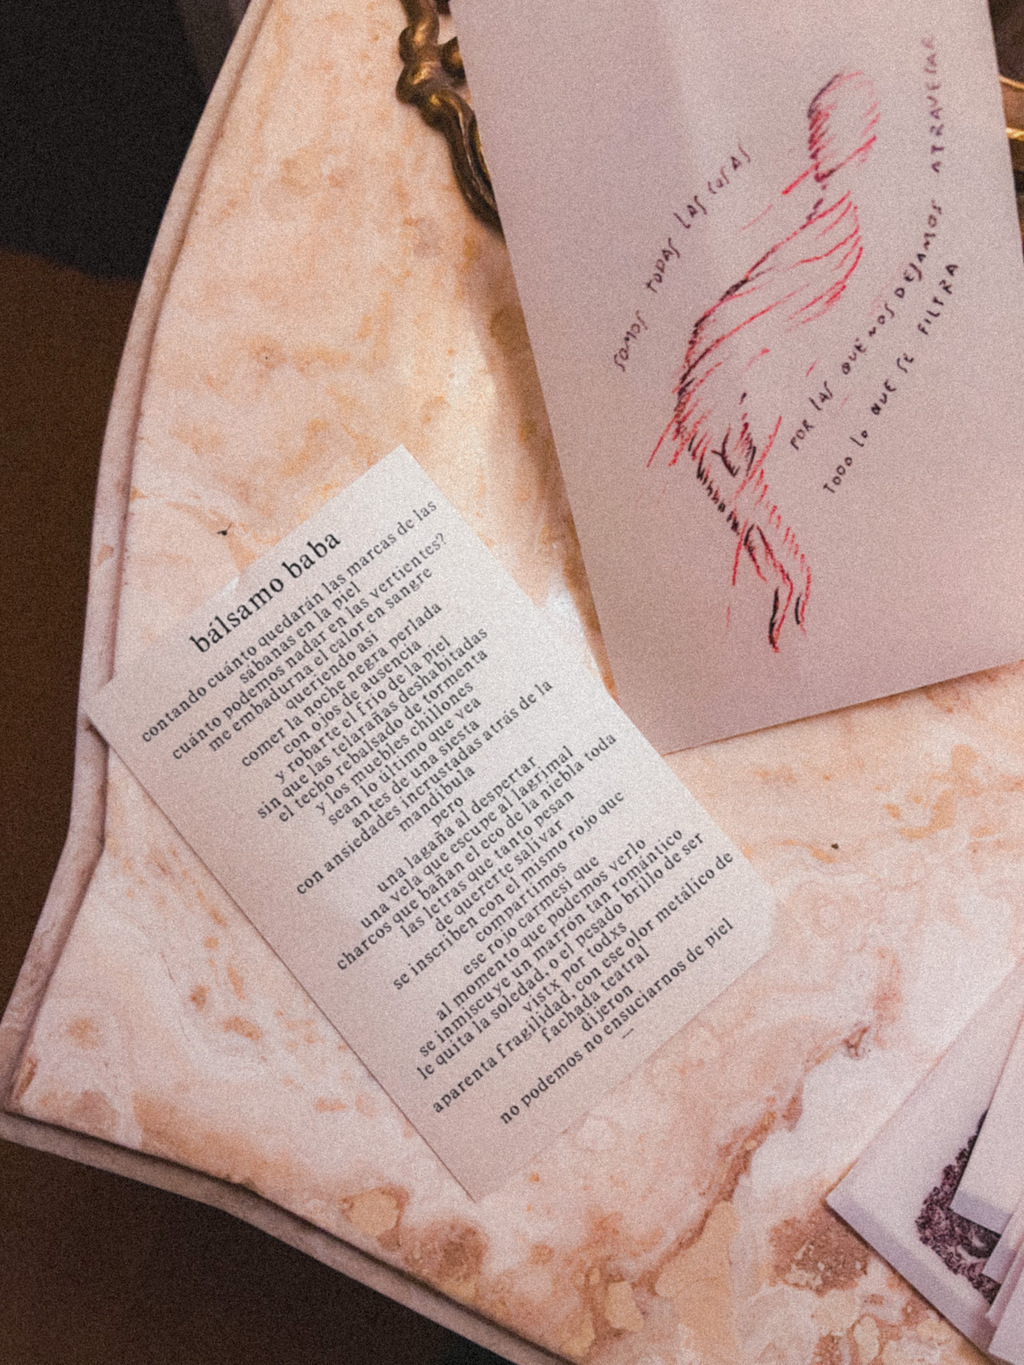 bálsamo baba
contando cuánto quedarán las marcas de las
sábanas en la piel
cuánto podemos nadar en las vertientes?
me embadurna el calor en sangre
queriendo asi
comer la noche negra perlada
con ojos de ausencia
y robarte el frío de la piel
sin que las telarañas deshabitadas
el techo rebalsado de tormenta
y los muebles chillones
sean lo último que vea
antes de una siesta
con ansiedades incrustadas atrás de la
mandíbula
pero
una lagaña al despertar
una vela que escupe al lagrimal
charcos que bañan el eco de la niebla toda
las letras que tanto pesan
de quererte salivar
se inscriben con el mismo rojo que
compartimos
ese rojo carmesí que
al momento que podemos verlo
se inmiscuye un marrón tan romántico
le quita la soledad, o el pesado brillo de ser
vistx por todxs
aparenta fragilidad, con ese olor metálico de
fachada teatral
dijeron
no podemos no ensuciarnos de piel
—
SOMOS TODAS LAS COSAS
POR LAS QUE NOS DEJAMOS ATRAVESAR
TODO LO QUE SE FILTRA